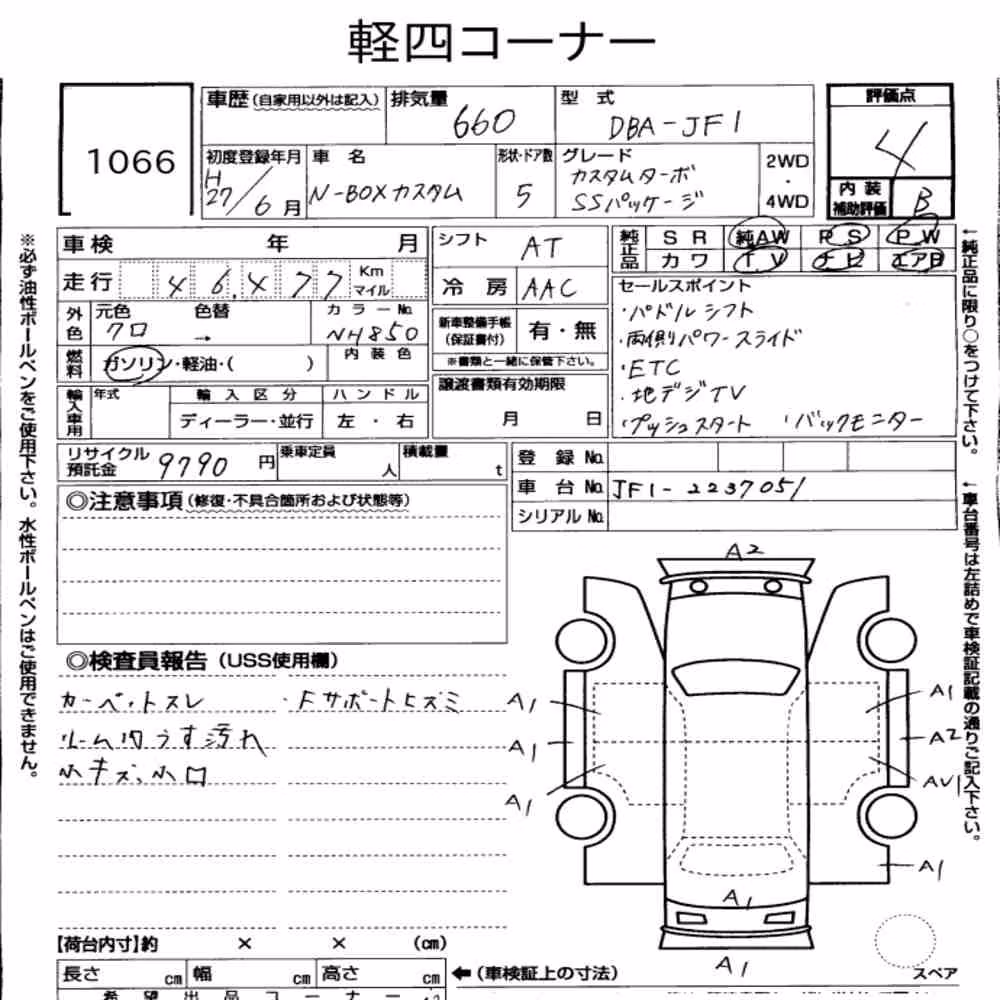 軽四コーナー
1066
車歴 (自家用以外は記入) 排気量 660 型 式 DBA-JF1
評価点 4
初度登録年月 H27/6月 車 名 N-BOXカスタム 形状・ドア数 5 グレード カスタムターボ SSパッケージ 2WD・4WD
内 装 補助評価 B
車検 年 月
シフト AT
純正品 SR 純AW PS PW
カワ TV ナビ エアB
走行 46,477 Km マイル
冷 房 AAC
セールスポイント
・パドルシフト
・両側パワースライド
・ETC
・地デジTV
・プッシュスタート ・バックモニター
外色 元色 クロ 色替 → カラーNo. NH850
新車整備手帳 (保証書付) 有・無
※書類と一緒に保管下さい。
燃料 ガソリン・軽油・( ) 内装色
譲渡書類有効期限
月 日
輸入車用 年式 輸入区分 ハンドル
ディーラー・並行 左・右
リサイクル預託金 9790 円 乗車定員 人 積載量 t
登 録 No.
車 台 No. JF1-2237051
シリアル No.
◎注意事項 (修復・不具合箇所および状態等)
◎検査員報告 (USS使用欄)
カーペットスレ ・Fサポートヒズミ
ルーム内うす汚れ
小キズ、小凹
A2
A1
A1
A1
A1
A2
AU1
A1
A1
A1
スペア
【荷台内寸】約 × × (cm)
長さ cm 幅 cm 高さ cm
←(車検証上の寸法)
希望出品コーナー
※必ず油性ボールペンをご使用下さい。水性ボールペンはご使用できません。
←純正品に限り○をつけて下さい。
←車台番号は左詰めで車検証記載の通りご記入下さい。